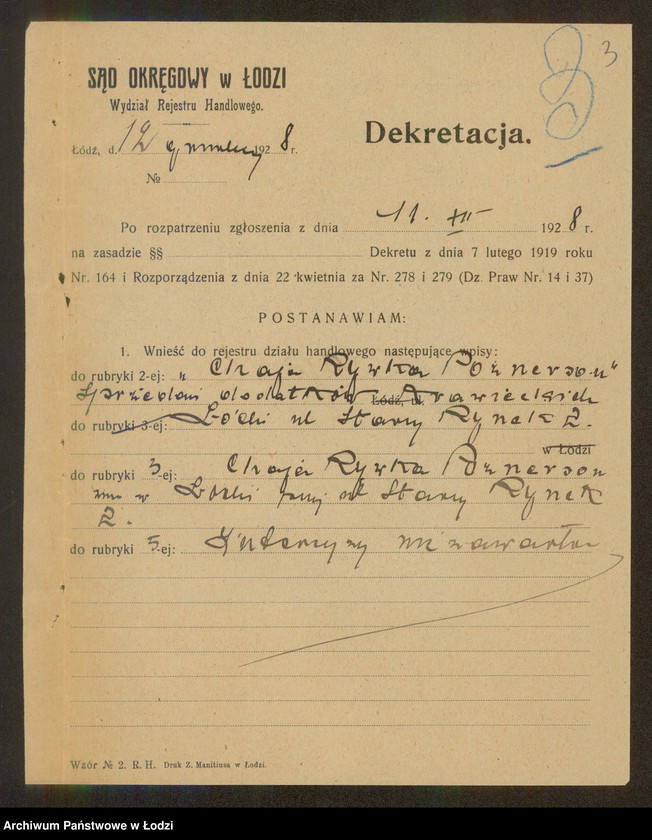 3
SĄD OKRĘGOWY w ŁODZI
Wydział Rejestru Handlowego.
Dekretacja.
Łódź, d. 12 grudnia 1928 r.
№
Po rozpatrzeniu zgłoszenia z dnia 11. XII 1928 r.
na zasadzie §§ Dekretu z dnia 7 lutego 1919 roku
Nr. 164 i Rozporządzenia z dnia 22 kwietnia za Nr. 278 i 279 (Dz. Praw Nr. 14 i 37)
POSTANAWIAM:
1. Wnieść do rejestru działu handlowego następujące wpisy:
do rubryki 2-ej: „Chaja Rywka Poznerson"
Sprzedaż dodatków Łódź, ul. krawieckich
do rubryki 3-ej: Łódź ul Stary Rynek 2.
w Łodzi
do rubryki 3-ej: Chaja Rywka Poznerson
zam w Łodzi przy ul Stary Rynek
2.
do rubryki 5-ej: Intercyzy nie zawarła
Wzór № 2. R. H. Druk Z. Manitiusa w Łodzi.
Archiwum Państwowe w Łodzi